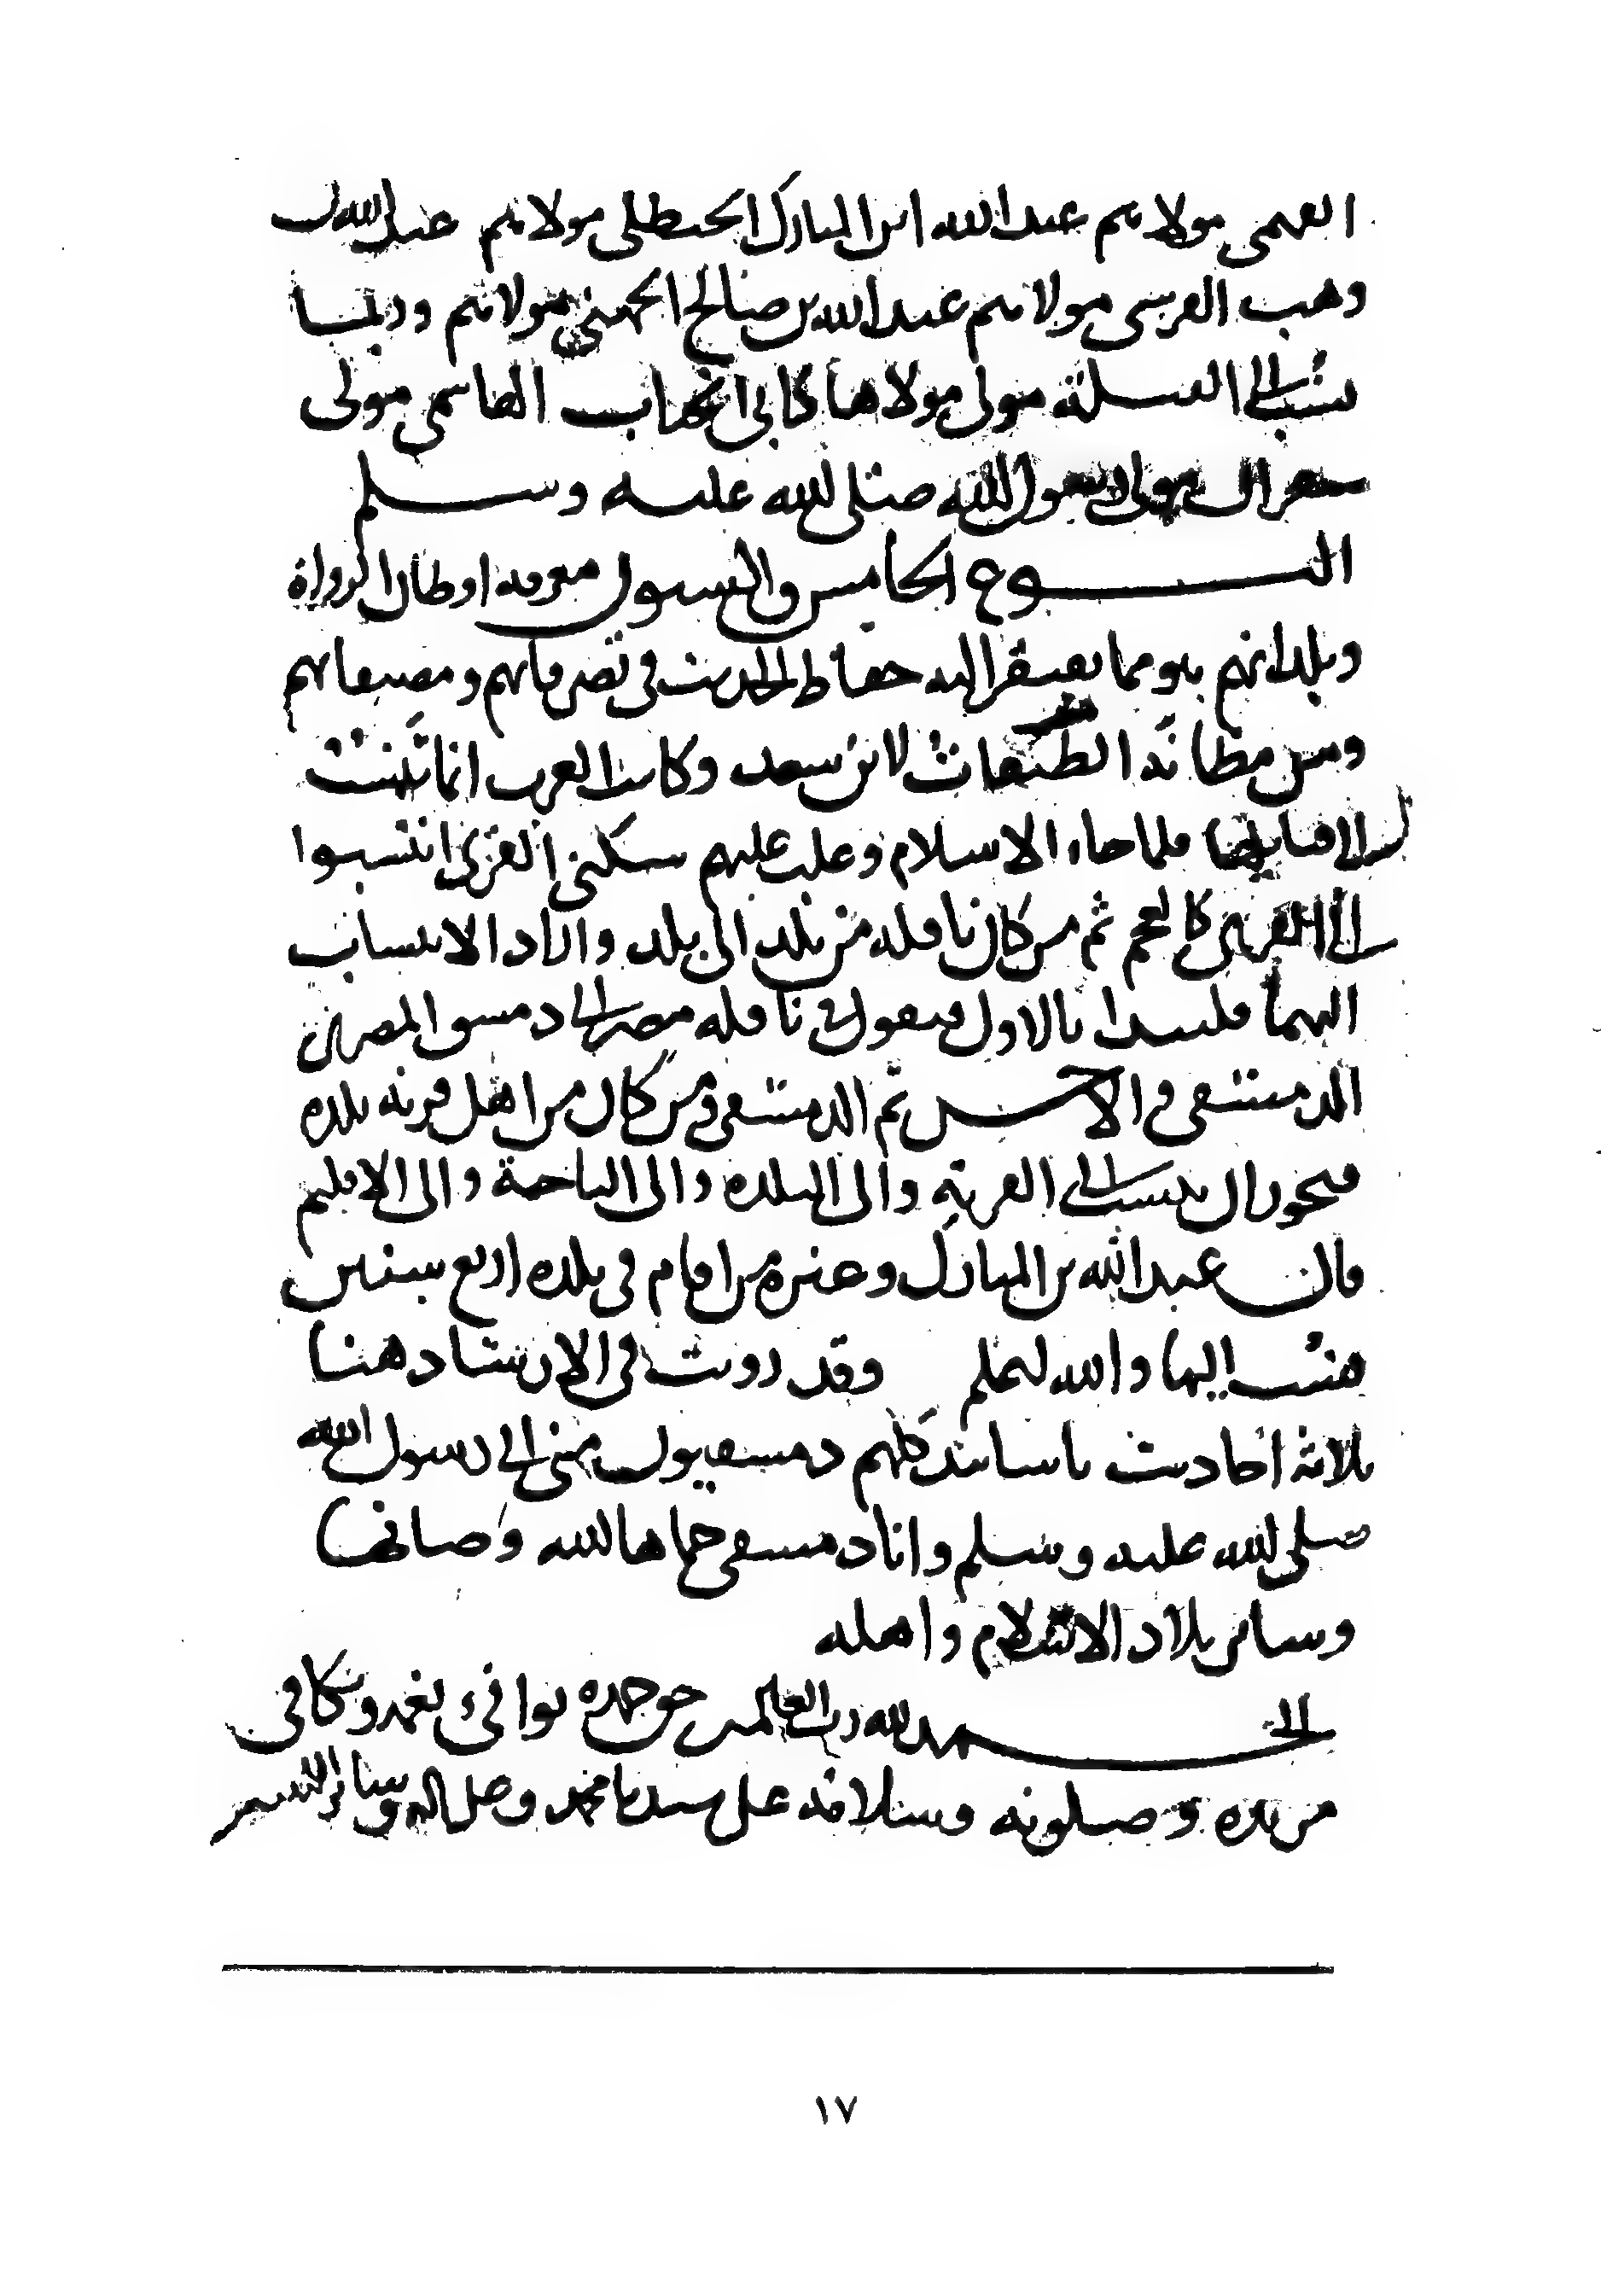 الفهمى مولاهم عبد الله ابن المبارك الحنظلى مولاهم عبد الله بن
وهب القرشى مولاهم عبد الله بن صالح الجهنى مولاهم وربما
نسب الى القبيلة مولى مولاها كابى الحباب الهاشمى مولى
شقران مولى رسول الله صلى الله عليه وسلم
النوع الخامس والستون معرفة اوطان الرواة
وبلدانهم هو مما يفتقر اليه حفاظ الحديث في تصرفاتهم ومصنفاتهم
ومن مظانه الطبقات لابن سعد وكانت العرب انما تنتسب
الى قبايلها فلما جاء الاسلام وغلب عليهم سكنى القرى انتسبوا
الى القرى كالعجم ثم من كان ناقله من بلد الى بلد واراد الانتساب
اليهما فليبدا بالاول فيقول في ناقله مصر الى دمشق المصرى
الدمشقى والاحسن ثم الدمشقى ومن كان من اهل قرية بلده
فيجوز ان ينتسب الى القرية والى البلده والى الناحية والى الاقليم
قال عبد الله بن المبارك وغيره من اقام في بلده اربع سنين
نسب اليها والله اعلم وقد رويت في الارشاد هنا
ثلاثة احاديث باسانيد كلهم دمشقيون منى الى رسول الله
صلى الله عليه وسلم وانا دمشقى حماها الله وصانها
وساير بلاد الاسلام واهله
الحمد لله رب العالمين حق حمده يوافى نعمه ويكافى
مزيده وصلوته وسلامه على سيدنا محمد وعلى اله وسائر النبيين
١٧